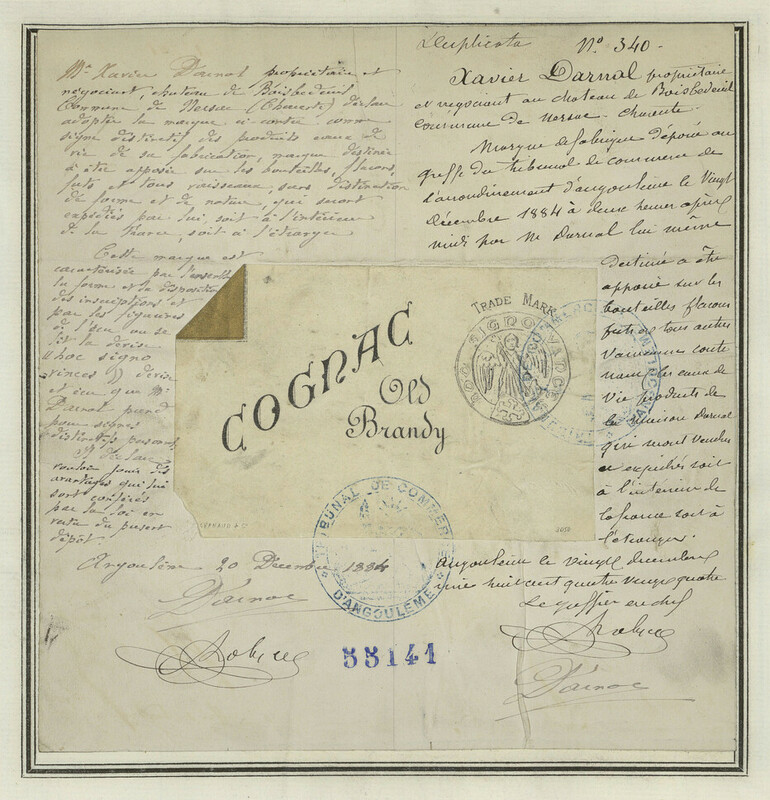 Mr Xavier Darnal propriétaire et
négociant château de Boisbedeuil
Commune de Nersac (Charente) déclare
adopter la marque ci contre comme
signe distinctif des produits eaux de
vie de sa fabrication, marque destinée
à être apposée sur les bouteilles, flacons,
futs et tous vaisseaux, sans distinction
de forme et de nature, qui seront
expédiés par lui, soit à l'intérieur
de la France, soit à l'étranger
Cette marque est
caractérisée par l'ensemble
la forme et la disposition
des inscriptions et
par les figures
de l'
lit la devise
"hoc signo
vinces)) devise
et que Mr
Darnal prend
pour signes
distinctifs
Il déclare
vouloir jouir des
avantages qui lui
sont conférés
par la loi en
vertu du présent
dépôt
Angoulême 20 Décembre 1884
Darnal
Duplicata No 340 -
Xavier Darnal propriétaire
et négociant au chateau de Boisbedeuil
commune de Nersac - Charente
Marque de fabrique déposée au
greffe du tribunal de commerce de
l'arrondissement d'angoulême le Vingt
Décembre 1884 à deux heures après
midi par M Darnal lui même
Destinée a être
apposée sur les
bouteilles flacons
futs et tous autres
Vaisseaux conte
nant les eaux de
Vie produits de
la maison Darnal
qui sont Vendus
ou expédiés soit
à l'intérieur de
la france soit à
l'étranger.
angoulême le vingt décembre
mil huit cent quatre vingt quatre
Le greffier en chef
Darnal
COGNAC
Old
Brandy
TRADE MARK
HOC SIGNO VINCES
TRIBUNAL DE COMMERCE
D'ANGOULÊME
55141